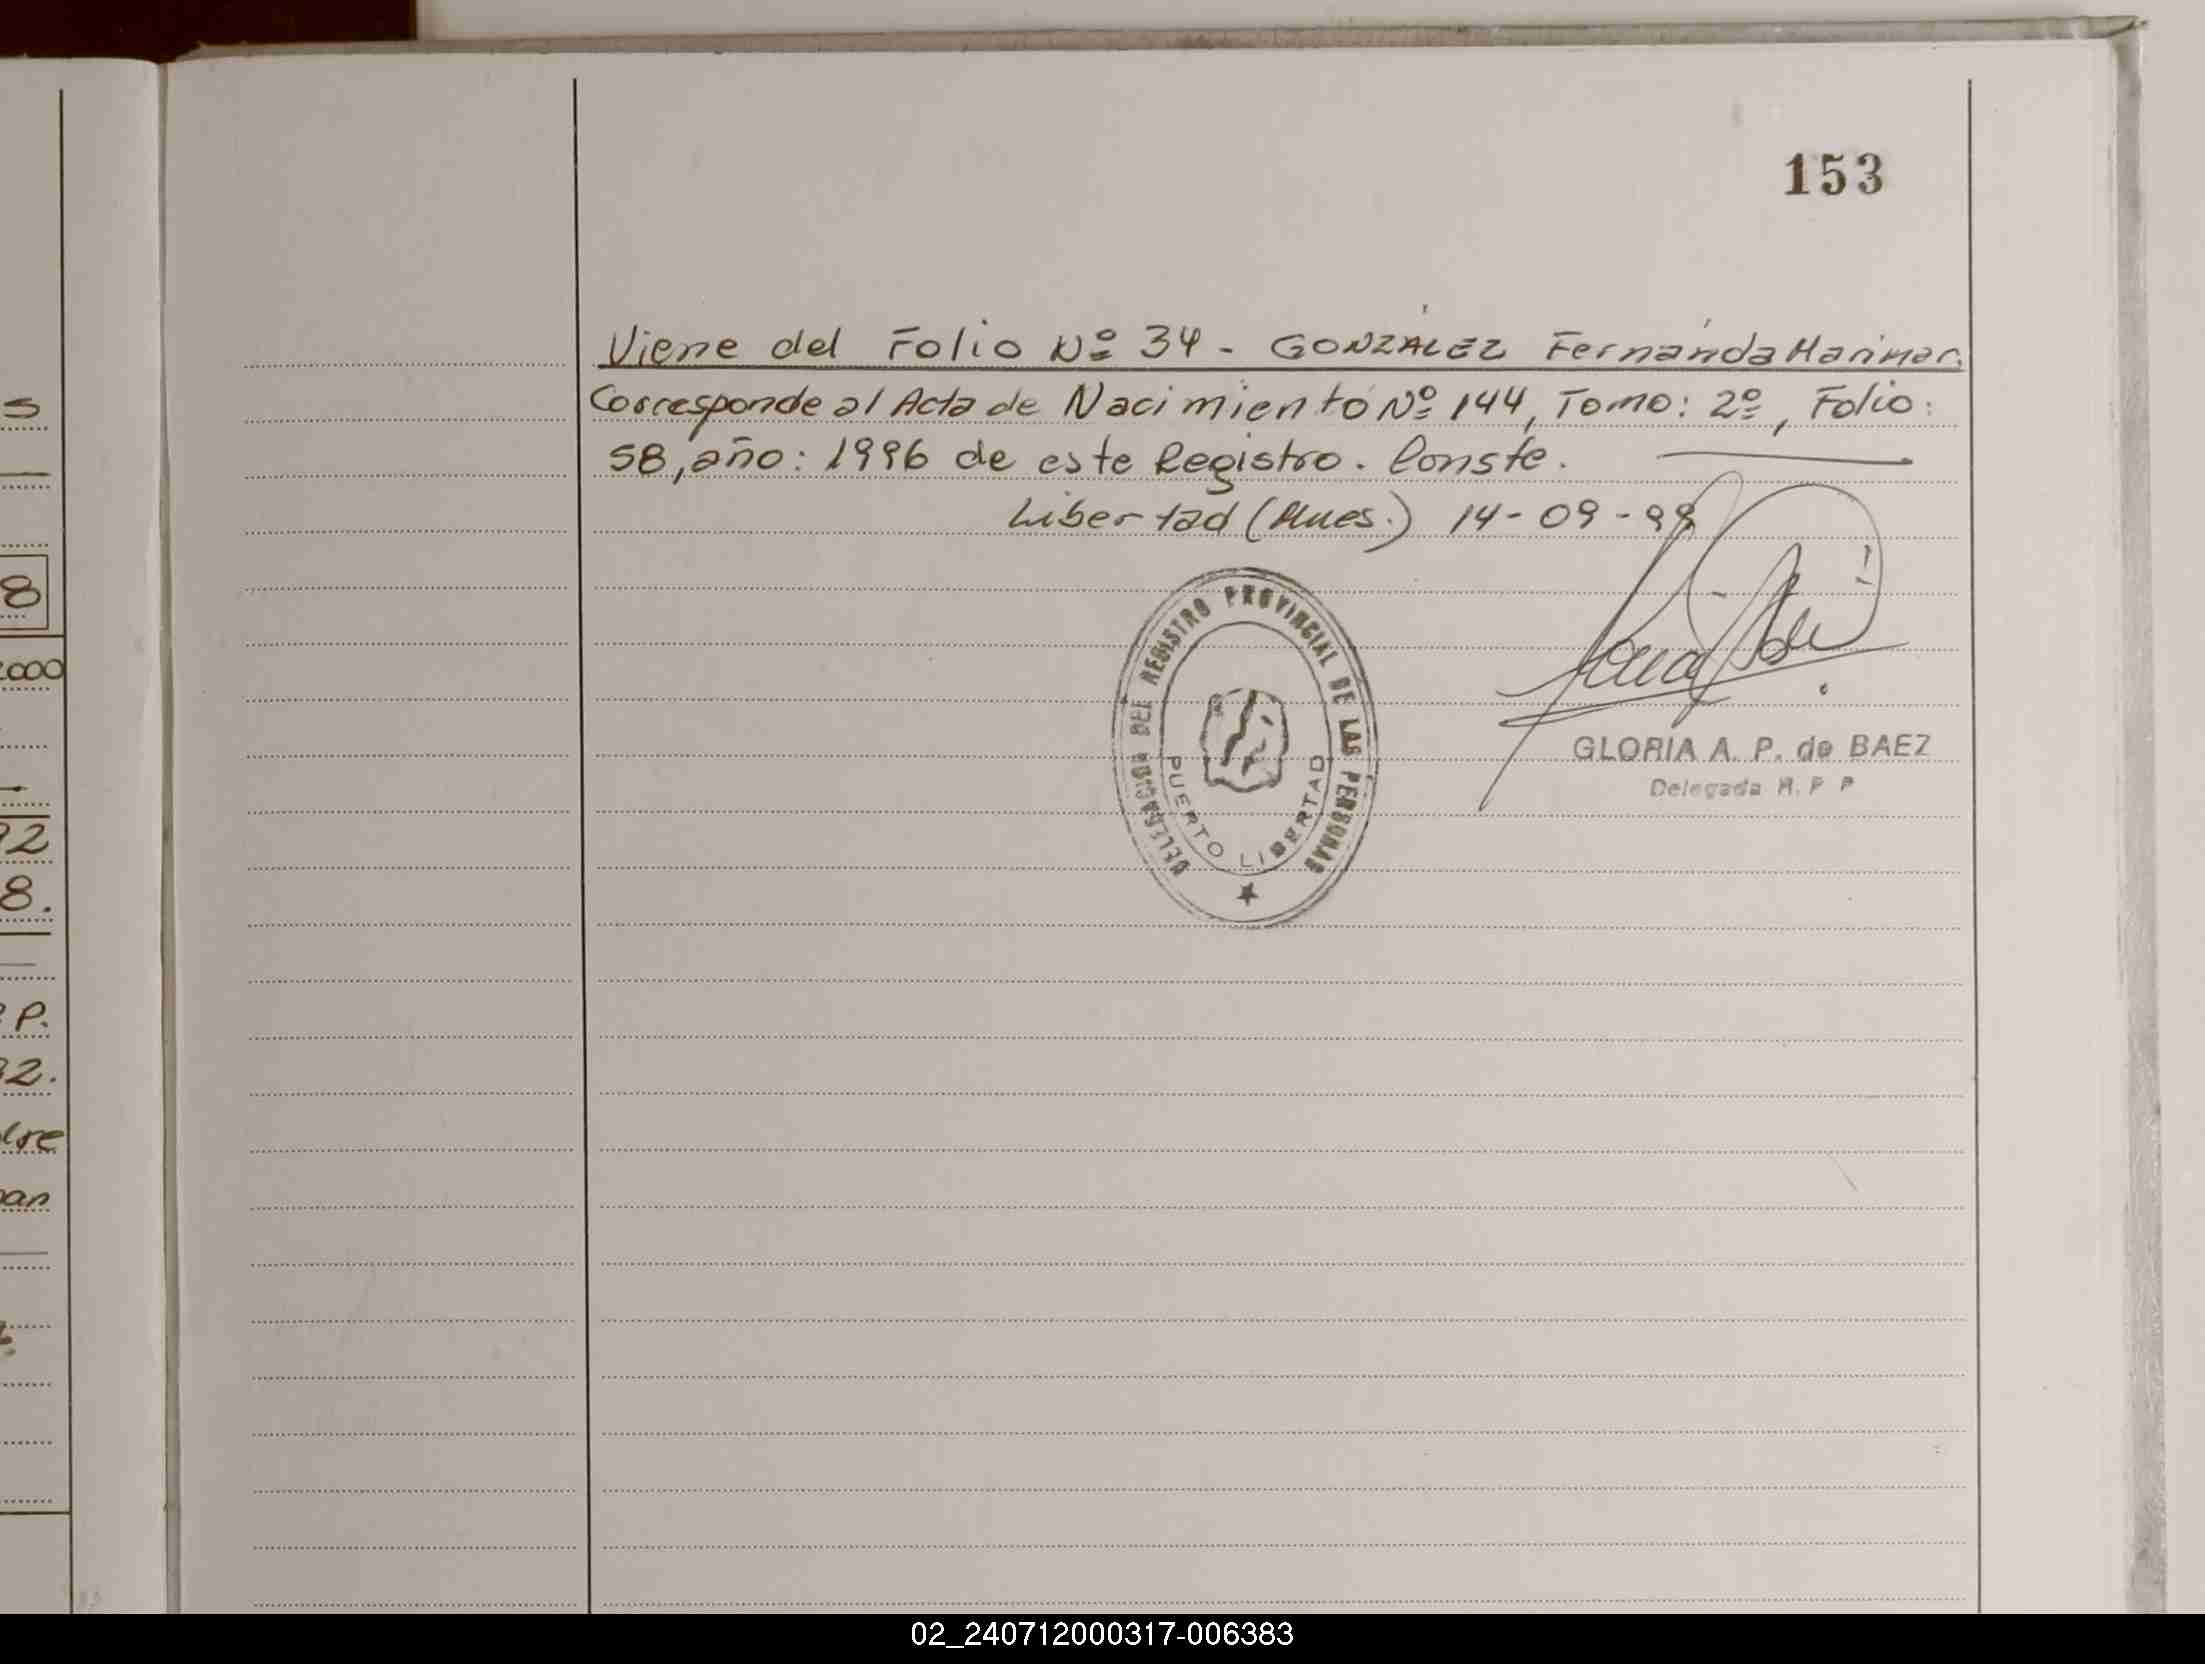 153
Viene del Folio Nº 34 - GONZÁLEZ Fernánda Marimar.
Corresponde al Acta de Nacimiento Nº 144, Tomo: 2º, Folio:
58, año: 1996 de este Registro. Conste.
Libertad (Mnes.) 14-09-98
DELEGACION DEL REGISTRO PROVINCIAL DE LAS PERSONAS
PUERTO LIBERTAD
GLORIA A. P. de BAEZ
Delegada R. P. P
s
8
2000
92
8.
P.
32.
dre
an
02_240712000317-006383